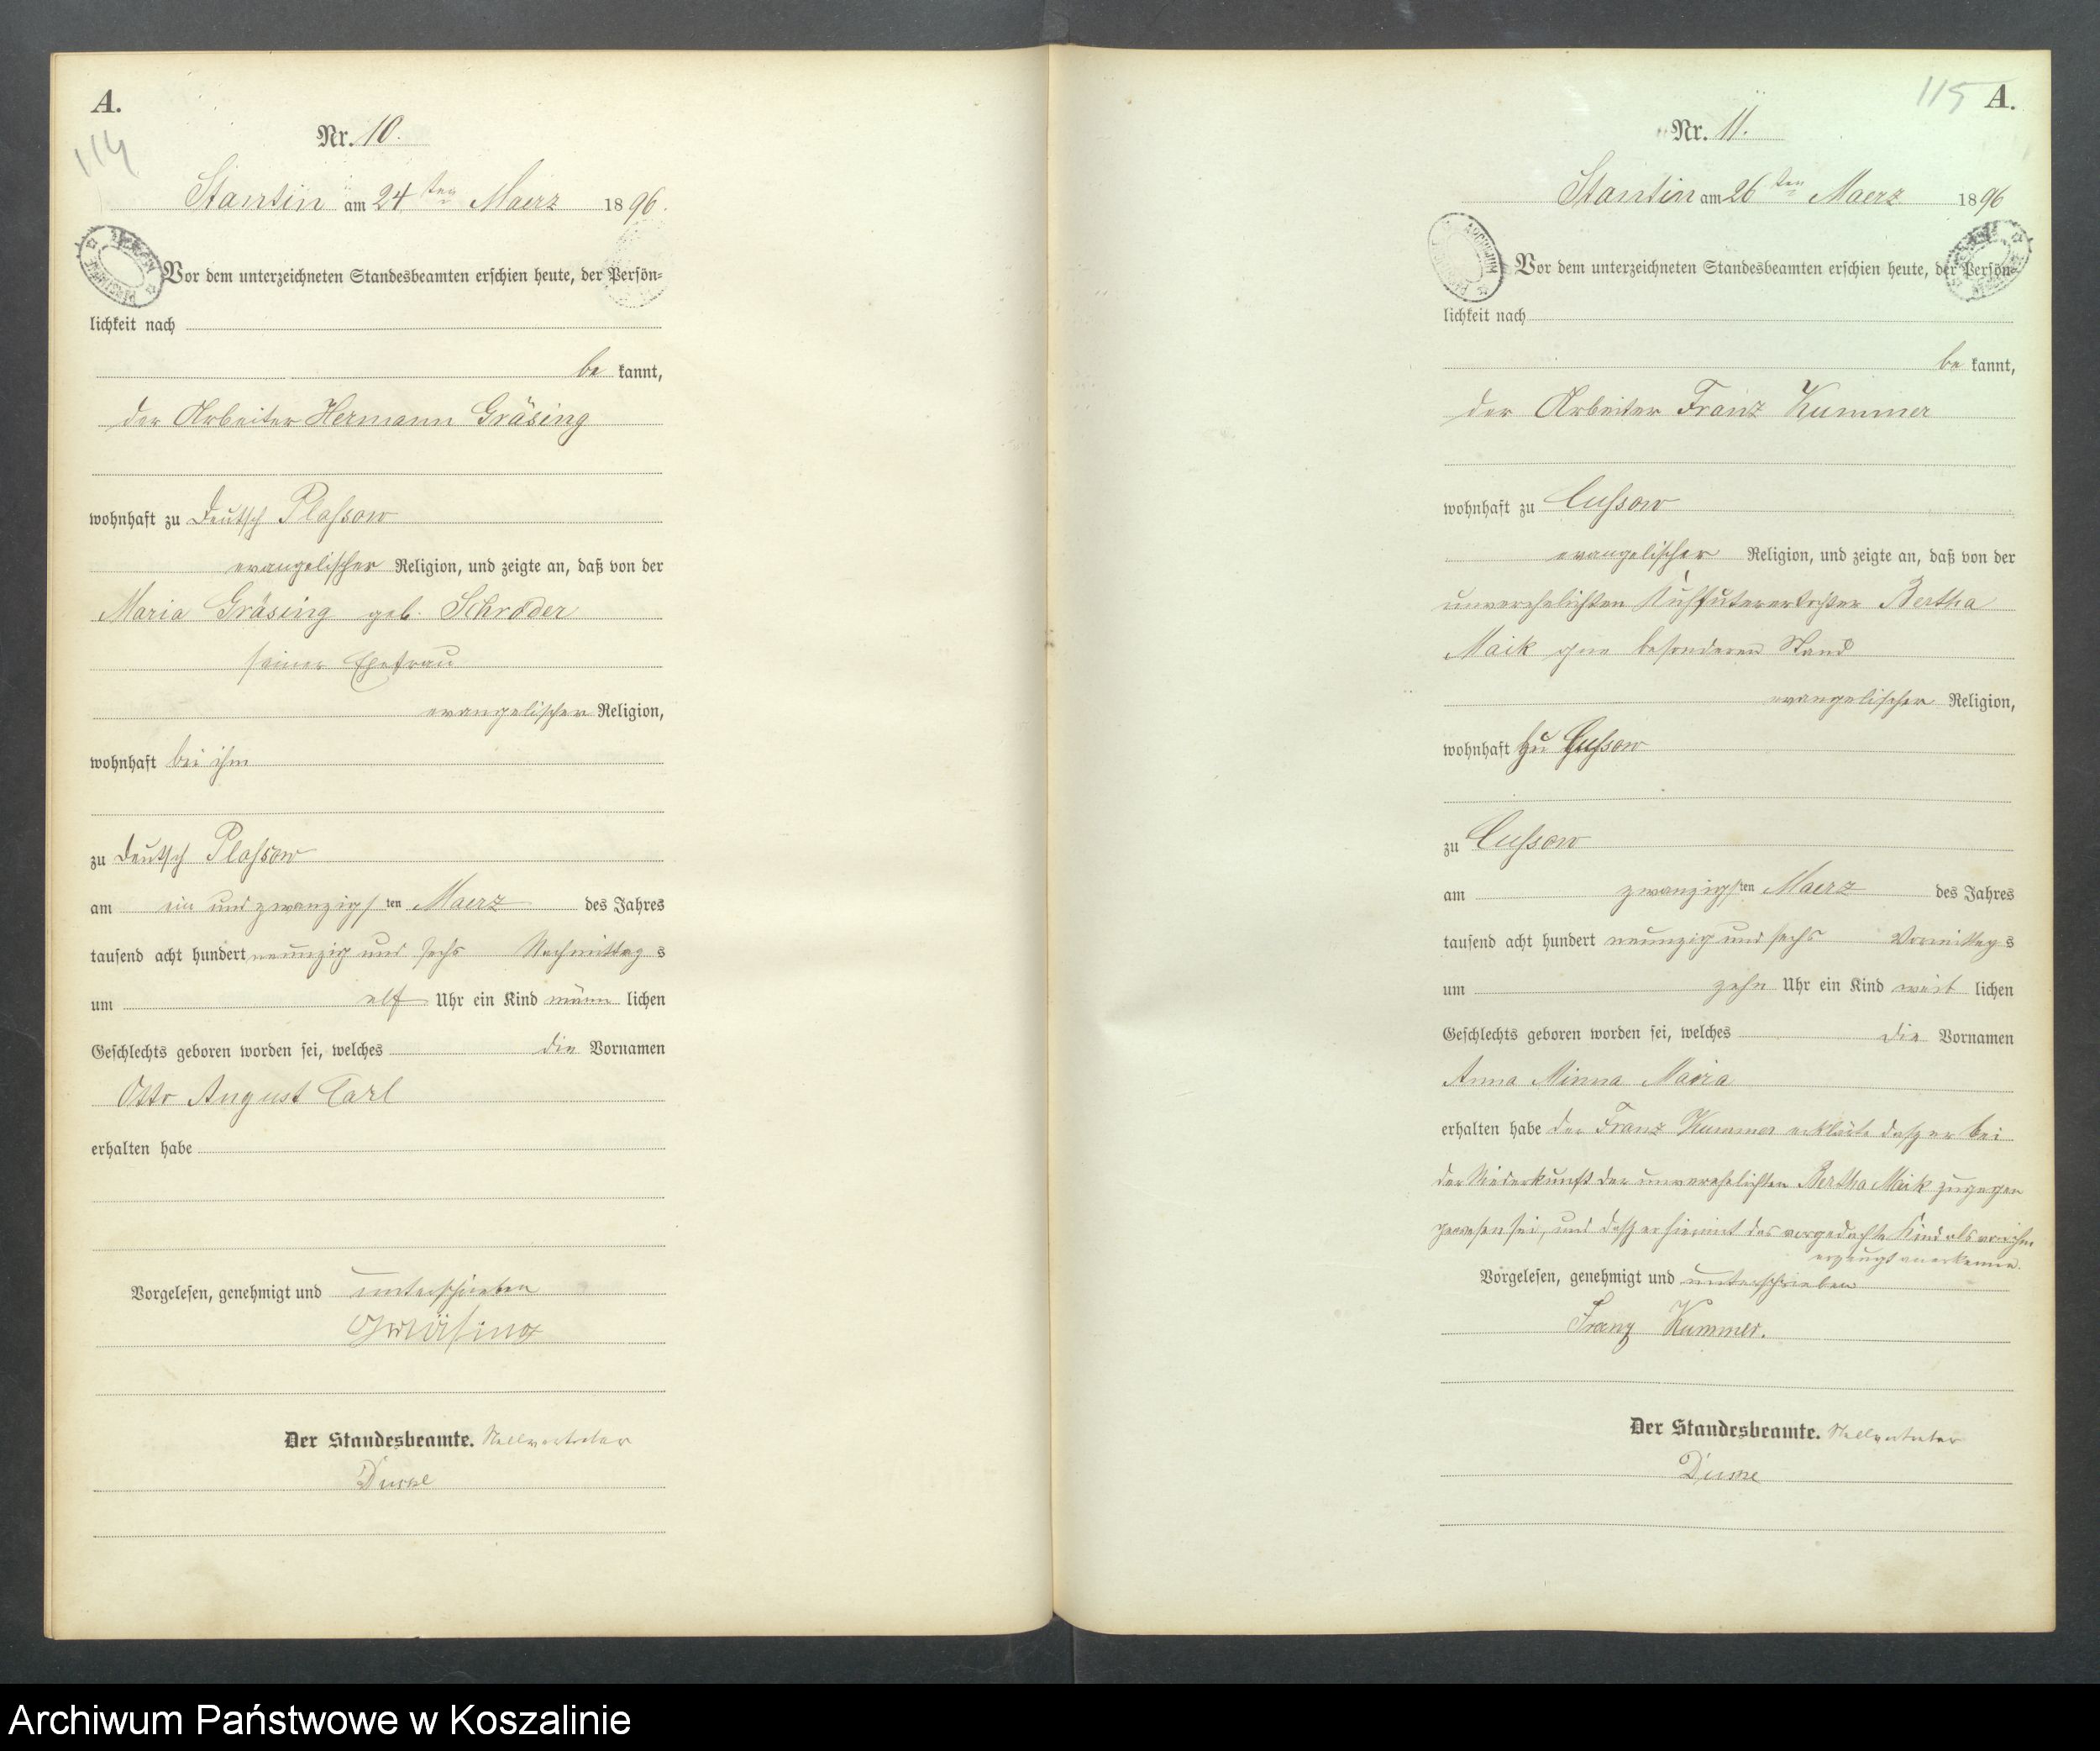 A.
114
Nr. 10.
Stantin am 24ten Maerz 1896.
Vor dem unterzeichneten Standesbeamten erschien heute, der Persön-
lichkeit nach
be kannt,
der Arbeiter Hermann Gräsing
wohnhaft zu Deutsch Plassow
evangelischer Religion, und zeigte an, daß von der
Maria Gräsing geb. Schröder
seiner Ehefrau
evangelischer Religion,
wohnhaft bei ihm
zu Deutsch Plassow
am ein und zwanzigsten Maerz des Jahres
tausend acht hundert neunzig und sechs Nachmittags
um elf Uhr ein Kind männ lichen
Geschlechts geboren worden sei, welches die Vornamen
Otto August Carl
erhalten habe
Vorgelesen, genehmigt und unterschrieben
Gräsing
Der Standesbeamte. Stellvertreter
115
A.
Nr. 11.
Stantin am 26ten Maerz 1896
Vor dem unterzeichneten Standesbeamten erschien heute, der Persön-
lichkeit nach
be kannt,
der Arbeiter Franz Kummer
wohnhaft zu Cussow
evangelischer Religion, und zeigte an, daß von der
unverehelichten Bertha
Maik besonderen Stand
evangelischer Religion,
wohnhaft zu Cussow
zu Cussow
am zwanzigsten Maerz des Jahres
tausend acht hundert neunzig und sechs Vormittags
um zehn Uhr ein Kind weib lichen
Geschlechts geboren worden sei, welches die Vornamen
Anna Minna Maria
erhalten habe der Franz Kummer erklärte daß er bei
der Niederkunft der unverehelichten Bertha Maik zugegen
gewesen sei, und daß er hiermit das vorgedachte Kind als von ihm
erzeugt anerkenne.
Vorgelesen, genehmigt und unterschrieben
Franz Kummer.
Der Standesbeamte. Stellvertreter
Archiwum Państwowe w Koszalinie